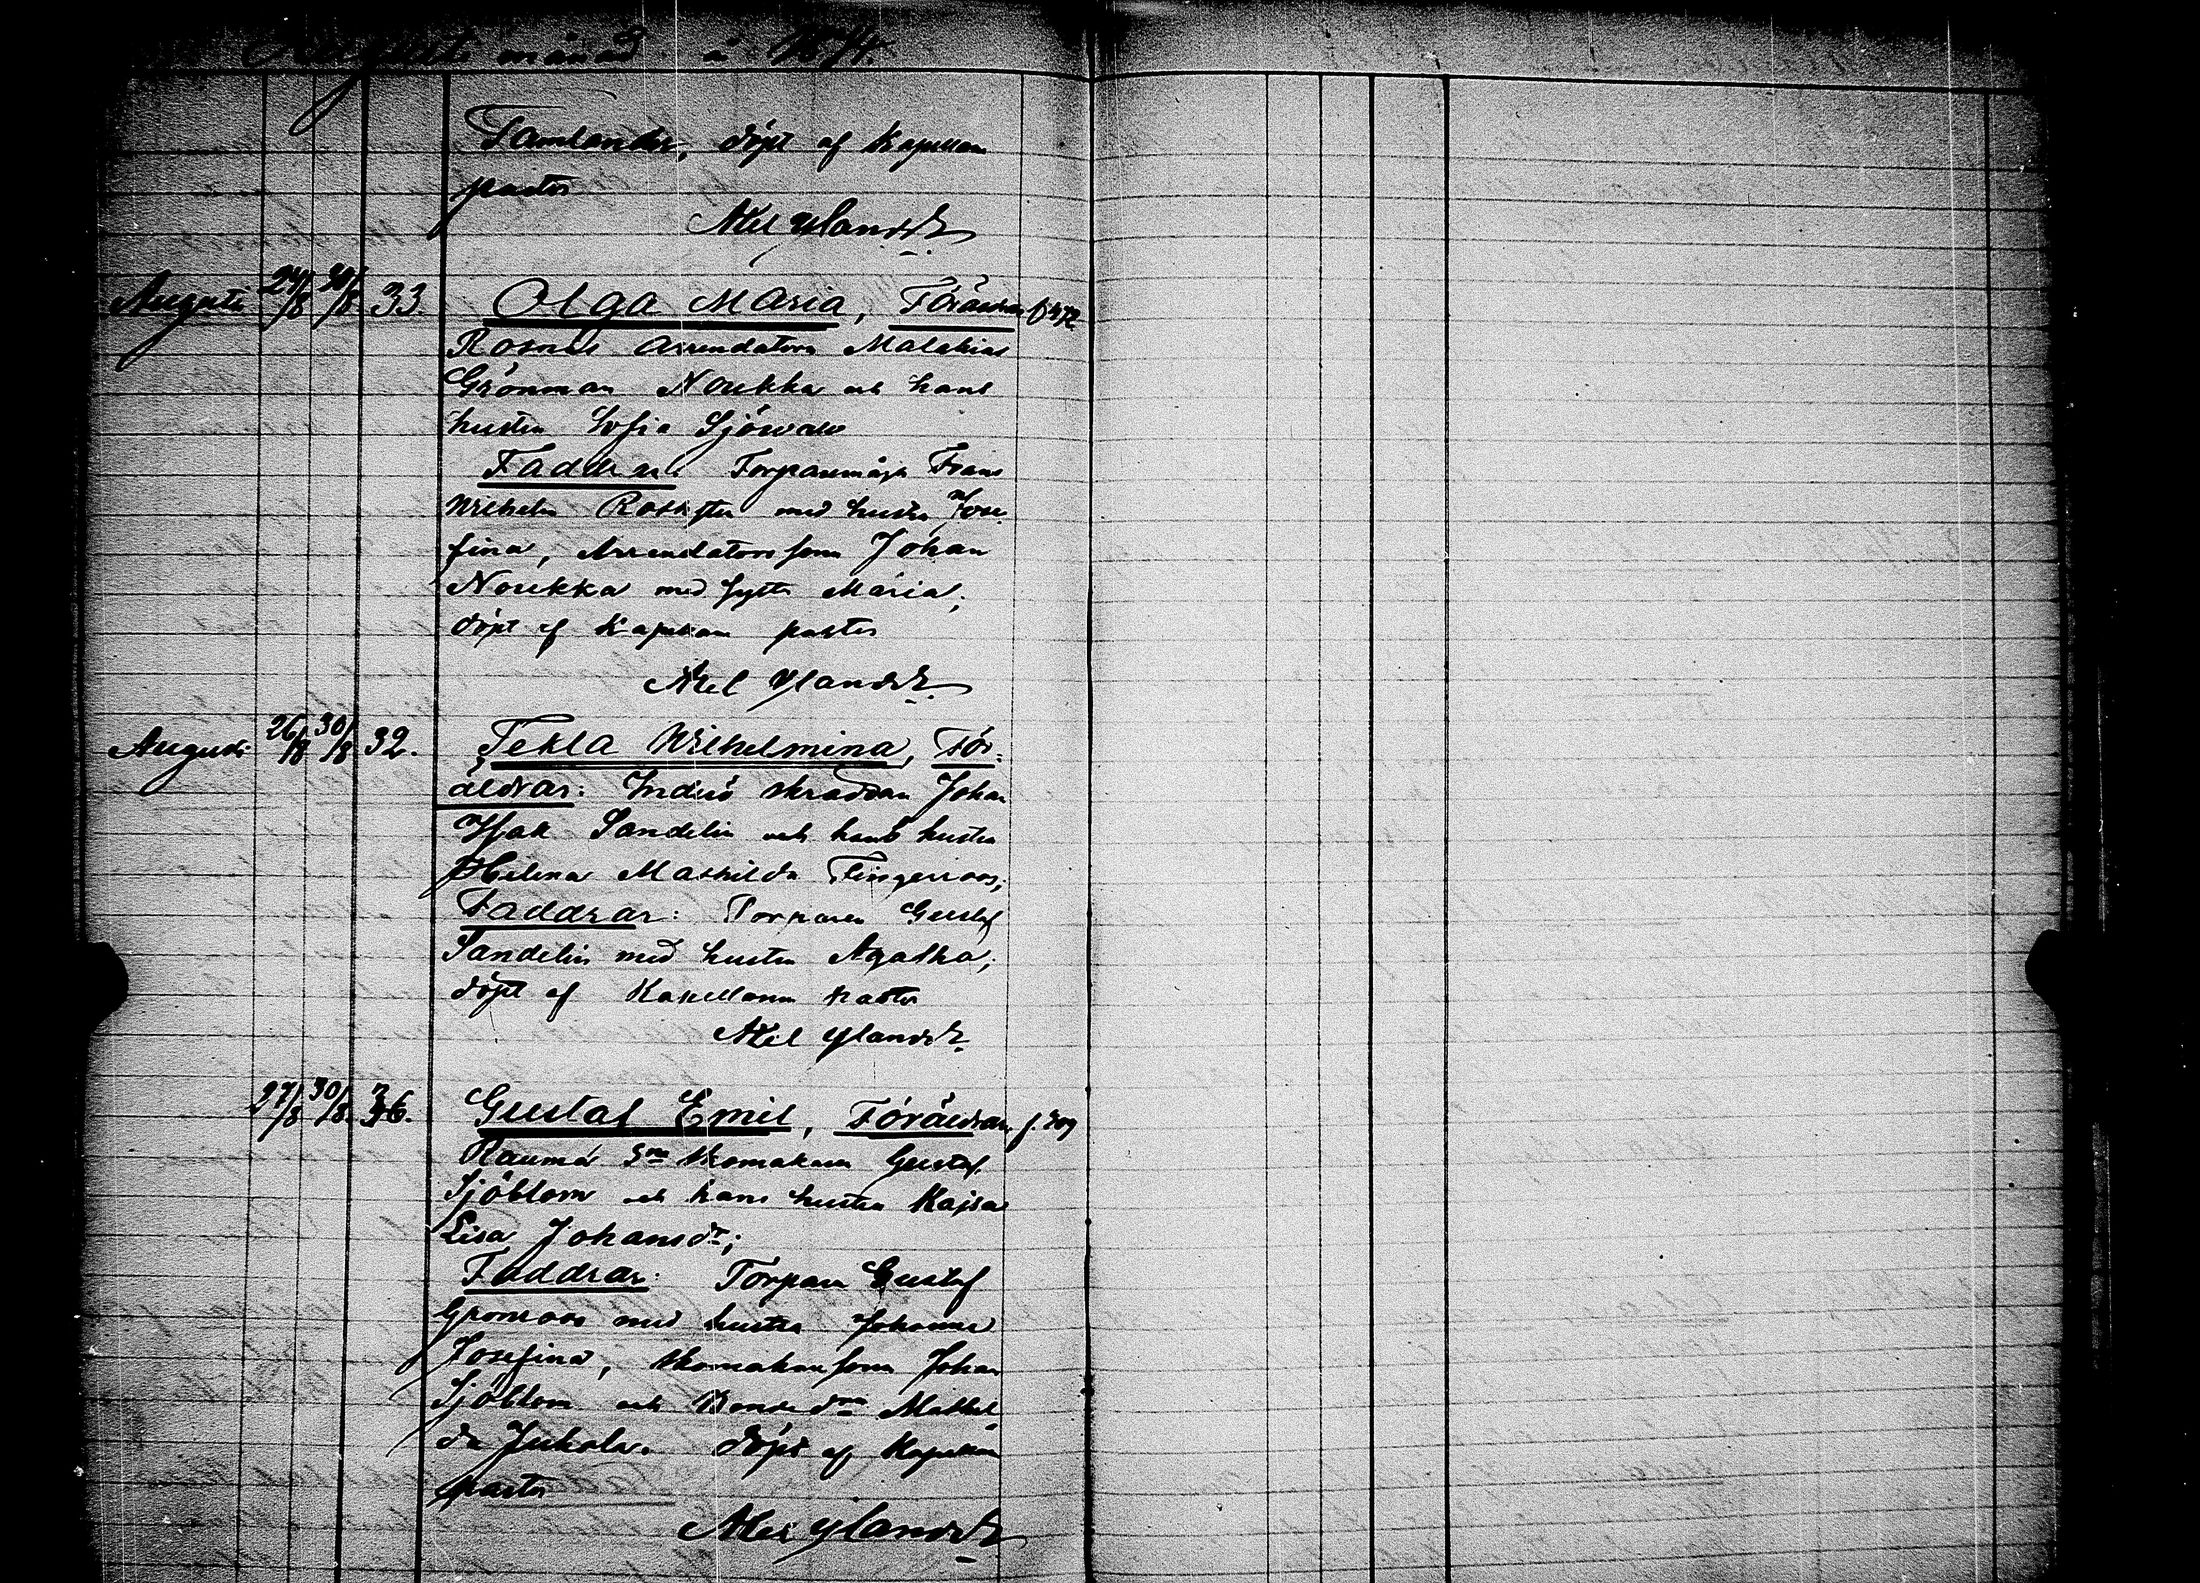 Augusti månad
Tamlander, döpt af Kapellans
pastor
Axel Ylander
Augusti 24/8 30/8 33. Olga Maria, Föräldrar f. 472
Arrendatorn Malakias
Grönman Noukka och hans
hustru Sofia Sjövall
Faddrar: Torparemåg Frans
Wilhelm med hustru Jose-
fina, Arrendatorssonen Johan
Noukka med Maria,
döpt af Kapellans pastor
Axel Ylander
Augusti 26/8 30/8 32. Tekla Wilhelmina, För-
äldrar: Inhis skräddaren Johan
Isak Sandelin och hans hustru
Helena Mathilda Fingerroos,
Faddrar: Torparen Gustaf
Sandelin med hustru Agatha,
döpt af Kapellans pastor
Axel Ylander
27/8 30/8 36. Gustaf Emil, Föräldrar f. 309
Skomakaren Gustaf
Sjöblom och hans hustru Kajsa
Lisa Johansdr;
Faddrar: Torparen Gustaf
Grönroos med hustru Johanna
Josefina, skomakaresonen Johan
Sjöblom och Bondedrn Mathil-
da Juhola. döpt af Kapellans
pastor
Axel Ylander